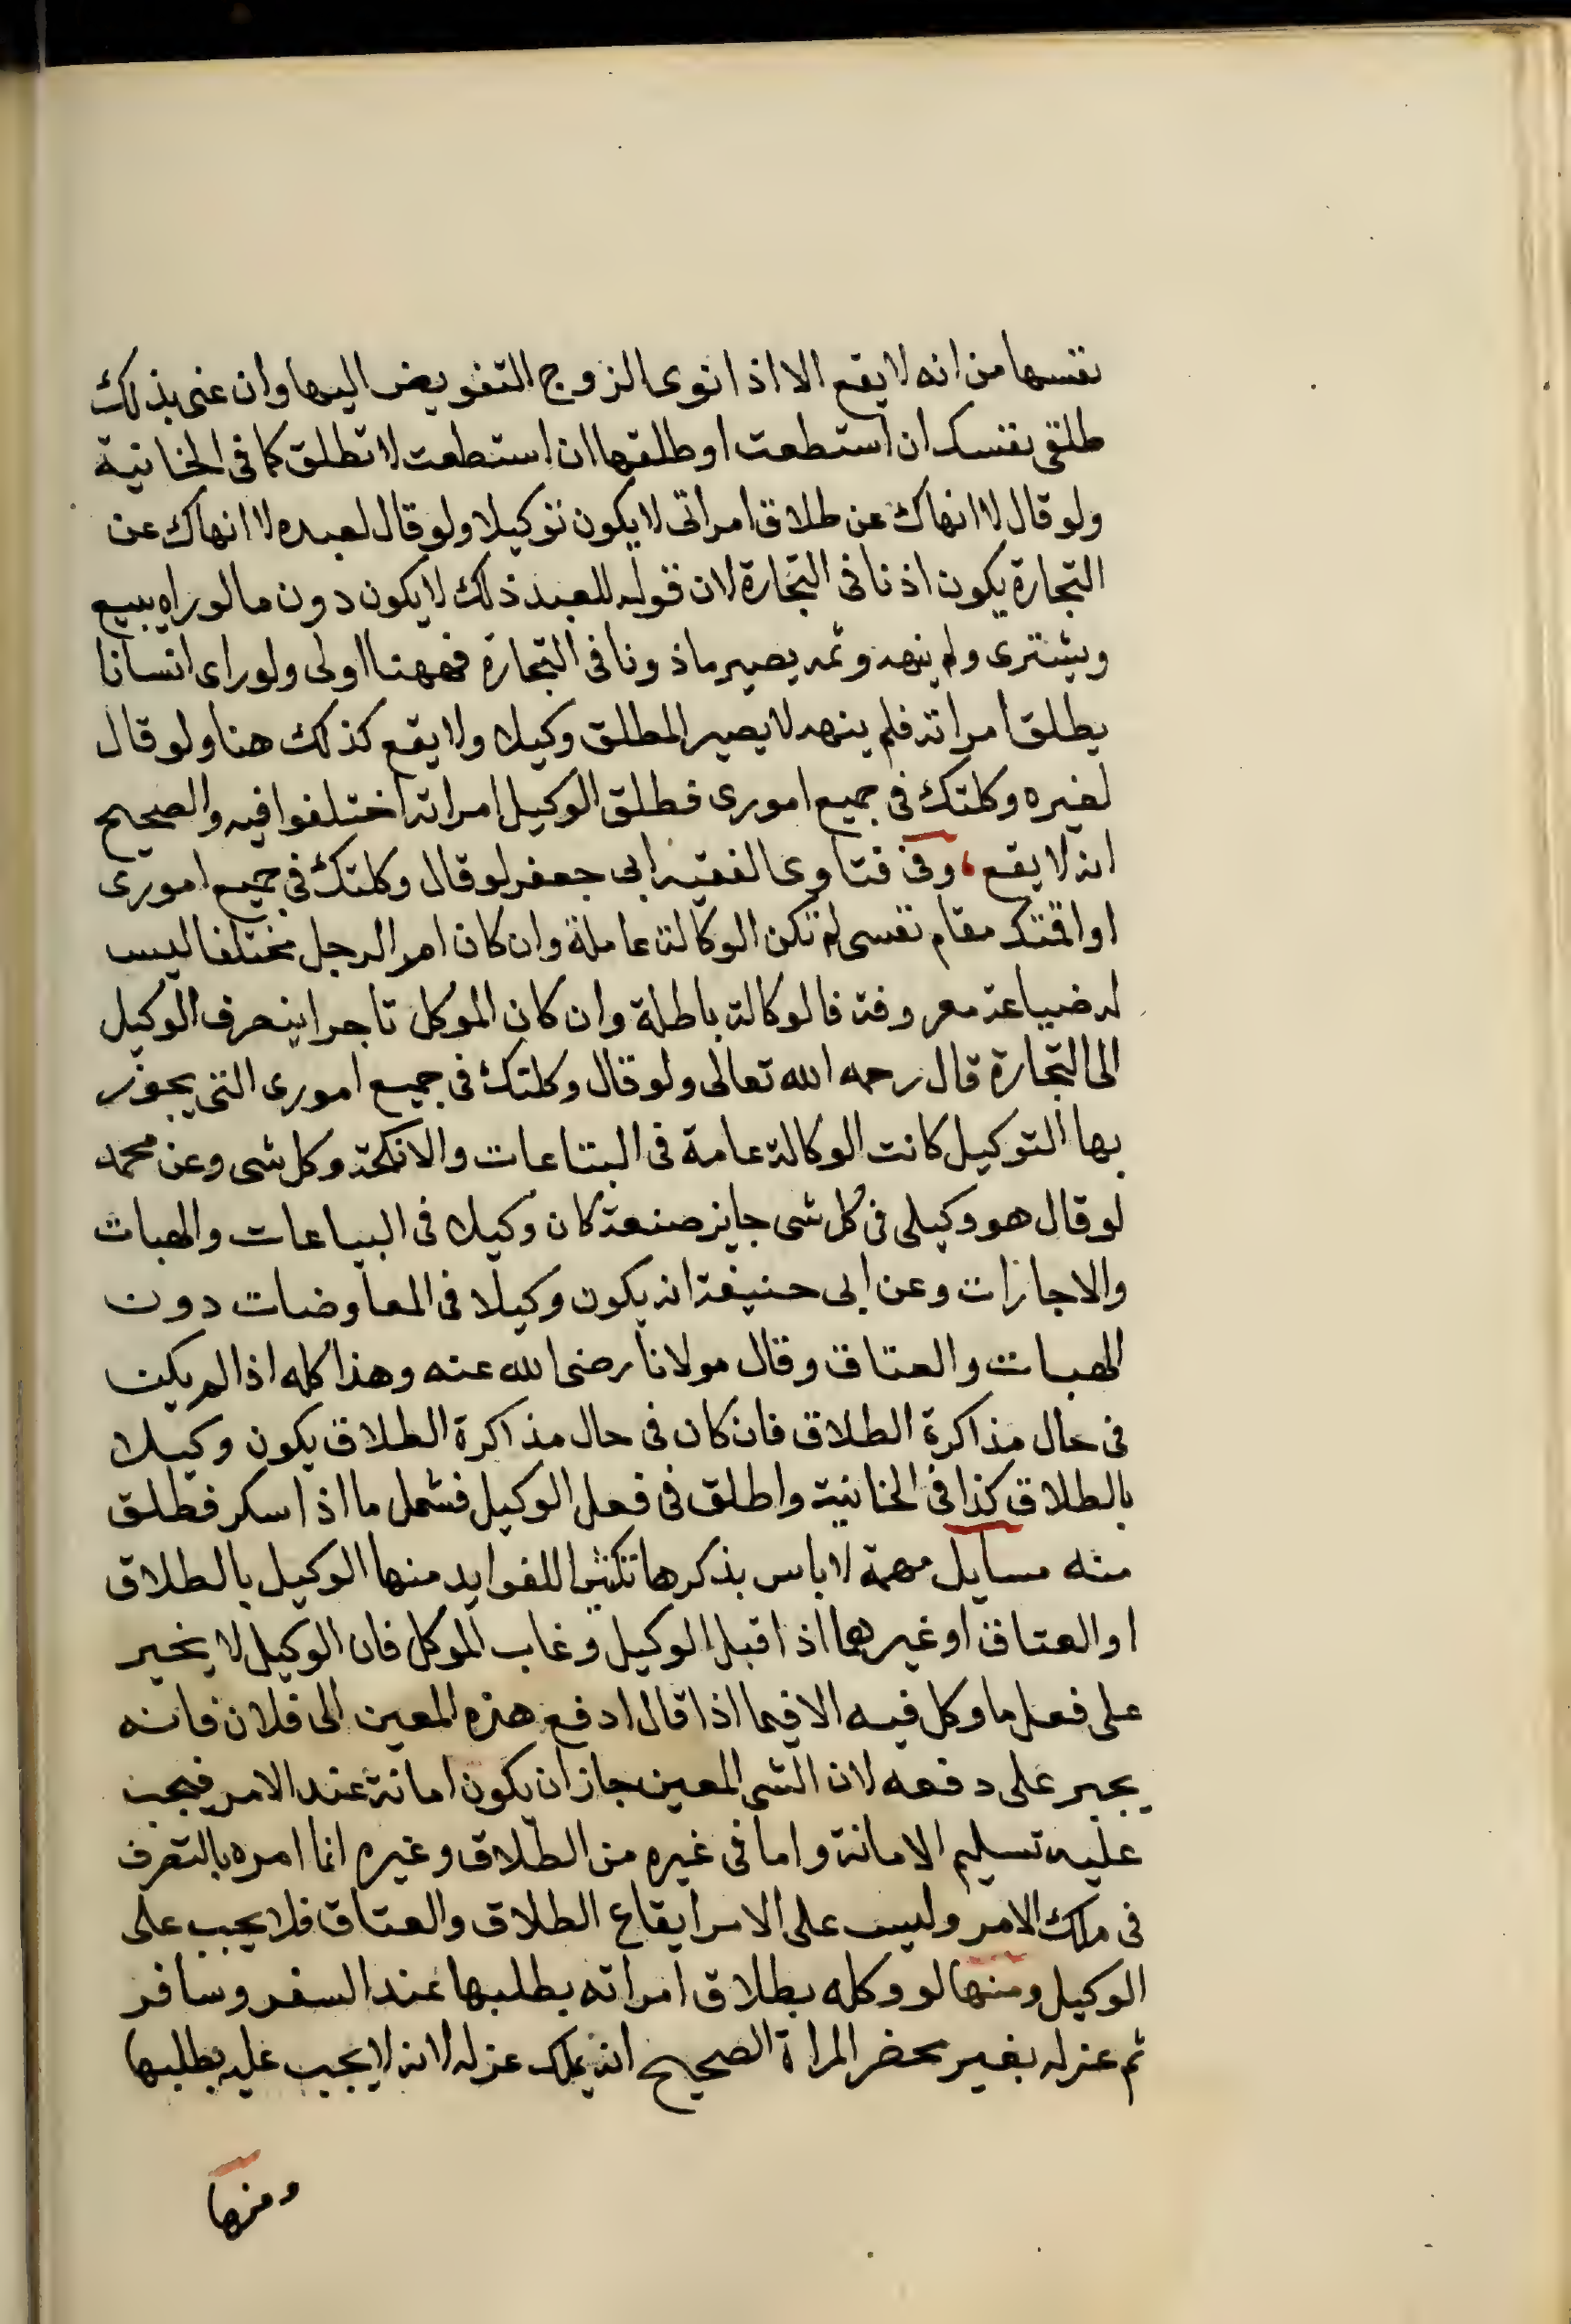 نفسها من انه لا يقع الا اذا نوى الزوج التفويض اليها وان عنى بذلك
طلقى نفسك ان استطعت او طلقها ان استطعت لا تطلق كما فى الخانية
ولو قال لا انهاك عن طلاق امراتى لا يكون توكيلا ولو قال لعبده لا انهاك عن
التجارة يكون اذنا فى التجارة لان قوله للعبد ذلك لا يكون دون ما لو راه يبيع
ويشترى ولم ينهه وثمه يصير ماذونا فى التجارة فههنا اولى ولو راى انسانا
يطلق امراته فلم ينهه لا يصير المطلق وكيلا ولا يقع كذلك هنا ولو قال
لغيره وكلتك فى جميع امورى فطلق الوكيل امراته اختلفوا فيه والصحيح
انه لا يقع، وفى فتاوى الفقيه ابى جعفر لو قال وكلتك فى جميع امورى
او اقمتك مقام نفسى لم تكن الوكالة عاملة وان كان امر الرجل مختلفا ليس
له ضياعة معروفة فالوكالة باطلة وان كان الموكل تاجرا ينصرف الوكيل
الى التجارة قال رحمه الله تعالى ولو قال وكلتك فى جميع امورى التى يجوز
بها التوكيل كانت الوكالة عامة فى البتاعات والانكحة وكل شى وعن محمد
لو قال هو وكيلى فى كل شى جايز صنعة كان وكيلا فى البياعات والهبات
والاجازات وعن ابى حنيفة انه يكون وكيلا فى المعاوضات دون
الهبات والعتاق وقال مولانا رضى الله عنه وهذا كله اذا لم يكن
فى حال مذاكرة الطلاق فان كان فى حال مذاكرة الطلاق يكون وكيلا
بالطلاق كذا فى الخانية واطلق فى فعل الوكيل فشمل ما اذا سكر فطلق
منه مسايل مهمة لا باس بذكرها تكثيرا للفوايد منها الوكيل بالطلاق
او العتاق او غيرهما اذا قبل الوكيل وغاب الموكل فان الوكيل لا يخير
على فعل ما وكل فيه الا فيما اذا قال ادفع هذه المعين الى فلان فانه
يجبر على دفعه لان الشى المعين جاز ان يكون امانة عند الامر فيجب
عليه تسليم الامانة واما فى غيره من الطلاق وغيره انما امره بالتصرف
فى ملك الامر وليس على الامر ايقاع الطلاق والعتاق فلا يجب على
الوكيل ومنها لو وكله بطلاق امراته بطلبها عند السفر وسافر
ثم عزله بغير محضر المراة الصحيح انه يملك عزله لانه لا يجب عليه بطلبها
ومنها